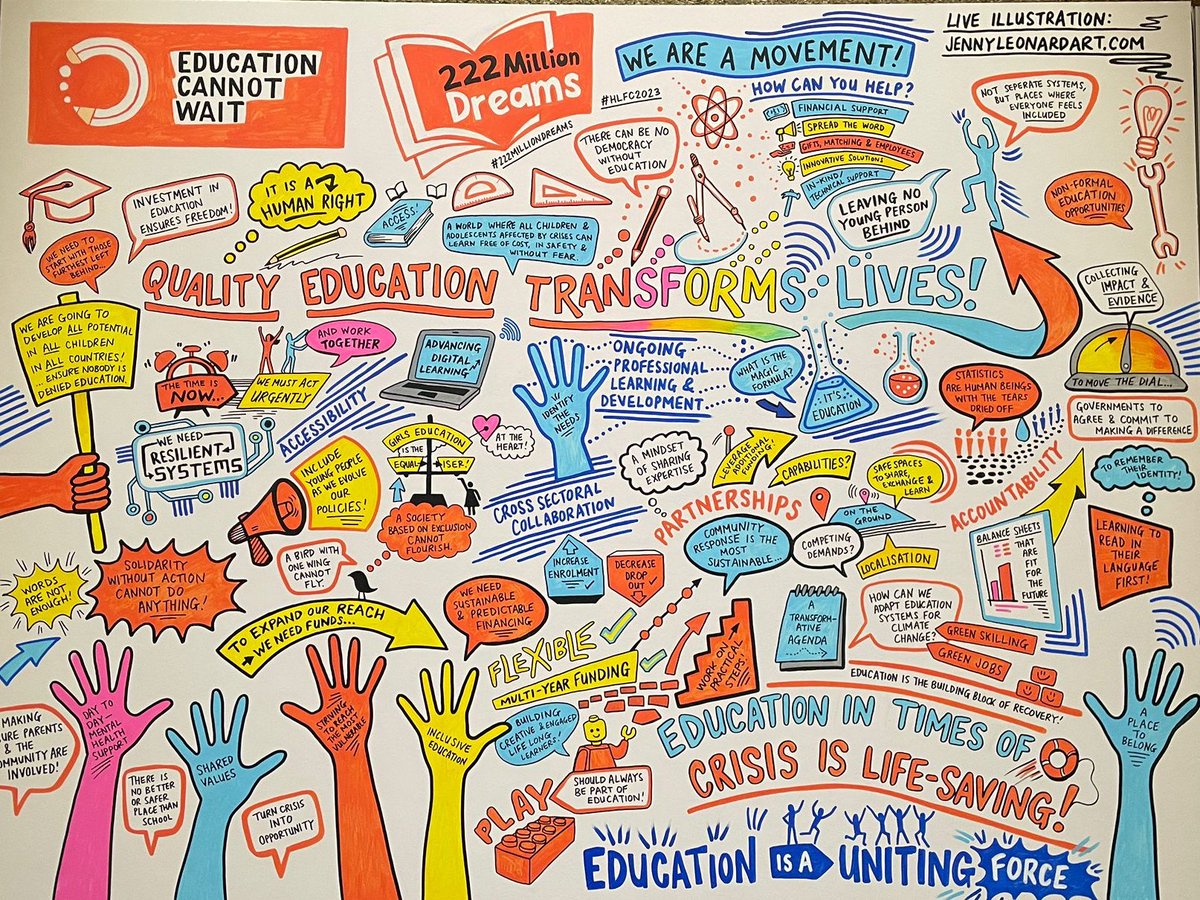 EDUCATION
CANNOT
WAIT
222 Million
Dreams
#222MILLIONDREAMS
#HLFC2023
WE ARE A MOVEMENT!
HOW CAN YOU HELP?
FINANCIAL SUPPORT
SPREAD THE WORD
GIFTS, MATCHING & EMPLOYEES
INNOVATIVE SOLUTIONS
IN-KIND/
TECHNICAL SUPPORT
LIVE ILLUSTRATION:
JENNYLEONARDART.COM
NOT SEPERATE SYSTEMS,
BUT PLACES WHERE
EVERYONE FEELS
INCLUDED
THERE CAN BE NO
DEMOCRACY
WITHOUT
EDUCATION
INVESTMENT IN
EDUCATION
ENSURES FREEDOM!
IT IS A
HUMAN RIGHT
ACCESS!
A WORLD WHERE ALL CHILDREN &
ADOLESCENTS AFFECTED BY CRISES CAN
LEARN FREE OF COST, IN SAFETY &
WITHOUT FEAR.
LEAVING NO
YOUNG PERSON
BEHIND
NON-FORMAL
EDUCATION
OPPORTUNITIES
WE NEED TO
START WITH THOSE
FURTHEST LEFT
BEHIND...
QUALITY EDUCATION TRANSFORMS LIVES!
COLLECTING
IMPACT &
EVIDENCE
TO MOVE THE DIAL...
WE ARE GOING TO
DEVELOP ALL POTENTIAL
IN ALL CHILDREN
IN ALL COUNTRIES!
...ENSURE NOBODY IS
DENIED EDUCATION.
THE TIME IS
NOW...
AND WORK
TOGETHER
WE MUST ACT
URGENTLY
ADVANCING
DIGITAL
LEARNING
ACCESSIBILITY
IDENTIFY
THE
NEEDS
ONGOING
PROFESSIONAL
LEARNING &
DEVELOPMENT
WHAT IS THE
MAGIC
FORMULA?
IT'S
EDUCATION
STATISTICS
ARE HUMAN BEINGS
WITH THE TEARS
DRIED OFF
GOVERNMENTS TO
AGREE & COMMIT TO
MAKING A DIFFERENCE
WE NEED
RESILIENT
SYSTEMS
INCLUDE
YOUNG PEOPLE
AS WE EVOLVE
OUR
POLICIES!
GIRLS EDUCATION
IS THE
EQUALISER!
AT THE
HEART!
A SOCIETY
BASED ON EXCLUSION
CANNOT
FLOURISH.
A BIRD WITH
ONE WING
CANNOT
FLY.
CROSS SECTORAL
COLLABORATION
A MINDSET
OF SHARING
EXPERTISE
LEVERAGE
ADDITIONAL
FUNDING!
CAPABILITIES?
SAFE SPACES
TO SHARE,
EXCHANGE &
LEARN
PARTNERSHIPS
ON THE
GROUND
COMMUNITY
RESPONSE IS THE
MOST
SUSTAINABLE...
COMPETING
DEMANDS?
LOCALISATION
ACCOUNTABILITY
BALANCE SHEETS
THAT
ARE
FIT
FOR
THE
FUTURE
TO REMEMBER
THEIR
IDENTITY!
LEARNING TO
READ IN
THEIR
LANGUAGE
FIRST!
WORDS
ARE NOT
ENOUGH!
SOLIDARITY
WITHOUT ACTION
CANNOT DO
ANYTHING!
TO EXPAND OUR REACH
WE NEED FUNDS...
WE NEED
SUSTAINABLE
& PREDICTABLE
FINANCING
INCREASE
ENROLMENT
DECREASE
DROP
OUT
FLEXIBLE
MULTI-YEAR FUNDING
WORK ON
PRACTICAL
STEPS!
A
TRANSFORM-
ATIVE
AGENDA
HOW CAN WE
ADAPT EDUCATION
SYSTEMS FOR
CLIMATE
CHANGE?
GREEN SKILLING
GREEN JOBS
EDUCATION IS THE BUILDING BLOCK OF RECOVERY!
MAKING
SURE PARENTS
& THE
COMMUNITY ARE
INVOLVED!
DAY TO
DAY—
MENTAL
HEALTH
SUPPORT
THERE IS
NO BETTER
OR SAFER
PLACE THAN
SCHOOL
SHARED
VALUES
TURN CRISIS
INTO
OPPORTUNITY
STRIVING
TO REACH
THE MOST
VULNERABLE
INCLUSIVE
EDUCATION
BUILDING
CREATIVE & ENGAGED
LIFE LONG
LEARNERS!
PLAY
SHOULD ALWAYS
BE PART OF
EDUCATION!
EDUCATION IN TIMES OF
CRISIS IS LIFE-SAVING!
A
PLACE
TO
BELONG!
EDUCATION IS A UNITING FORCE